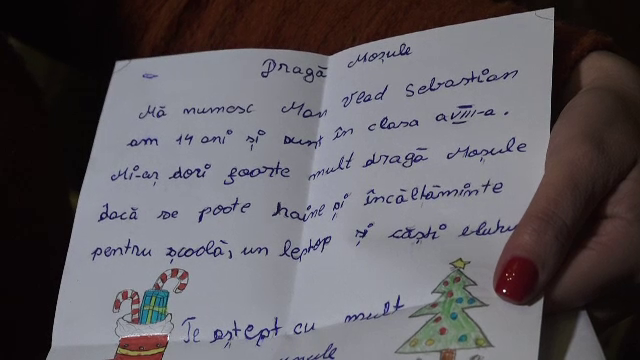 Dragă Moșule
Mă numesc Man Vlad Sebastian
am 14 ani și sunt în clasa a VIII-a.
Mi-aș dori foarte mult dragă Moșule
dacă se poate haine și încălțăminte
pentru școală, un leptop și căști
Te aștept cu mult